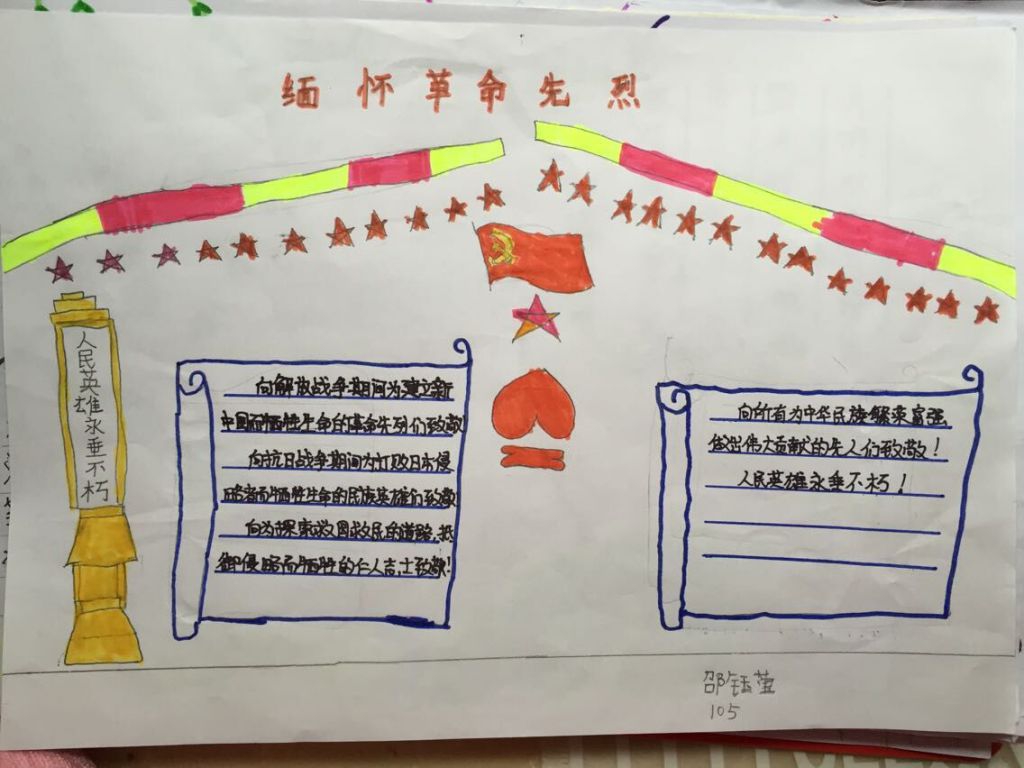 缅怀革命先烈
人民英雄永垂不朽
向解放战争期间为建立新
中国而牺牲生命的革命先烈们致敬
向抗日战争期间为打败日本侵
略者而牺牲生命的民族英雄们致敬
向为探索救国救民的道路,抵
御侵略而牺牲的仁人志士致敬!
向所有为中华民族繁荣富强,
做出伟大贡献的先人们致敬!
人民英雄永垂不朽!
邵钰莹
105